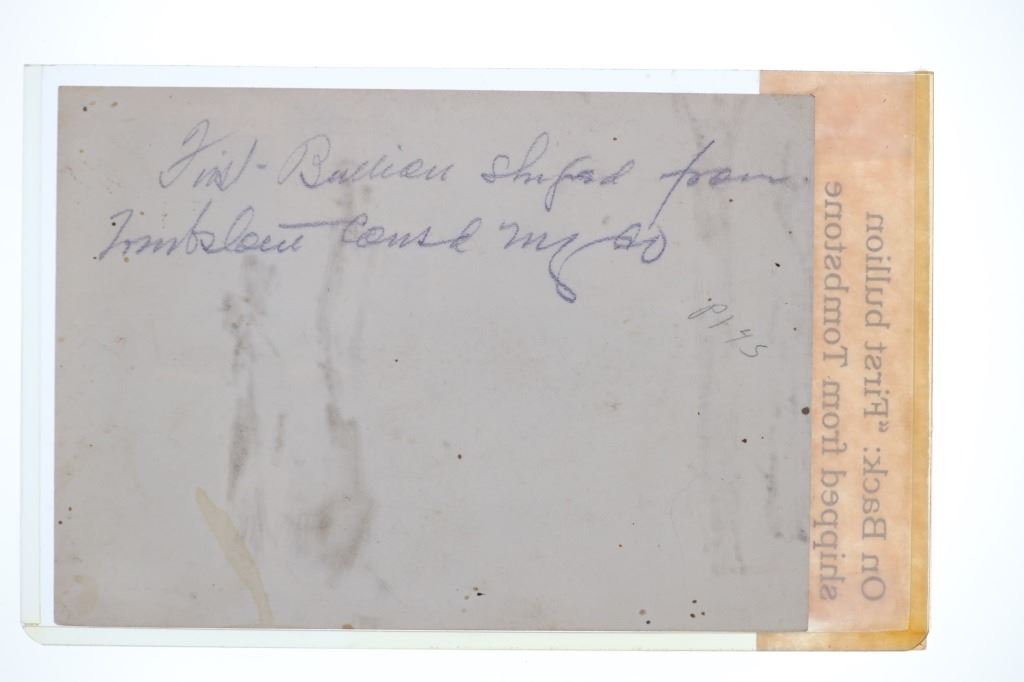 First Bullion shiped from
Tombstone Consd Mg Co
P1-45
On Back: "First bullion
shipped from Tombstone